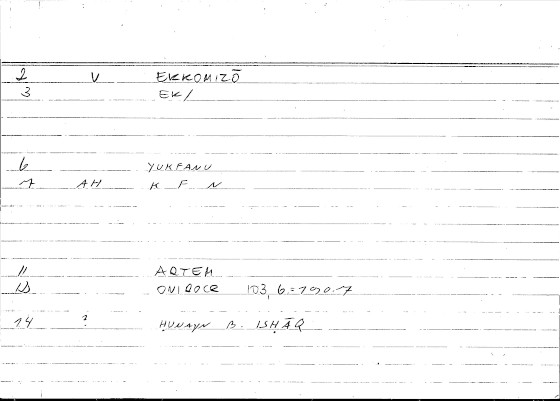 2 V EKKOMIZŌ
3 EK/
6 YUKFANU
7 AH K F N
11 ARTEM
13 ONIROCR 103, 6 = 190.7
14 ? ḤUNAYN B. ISḤĀQ